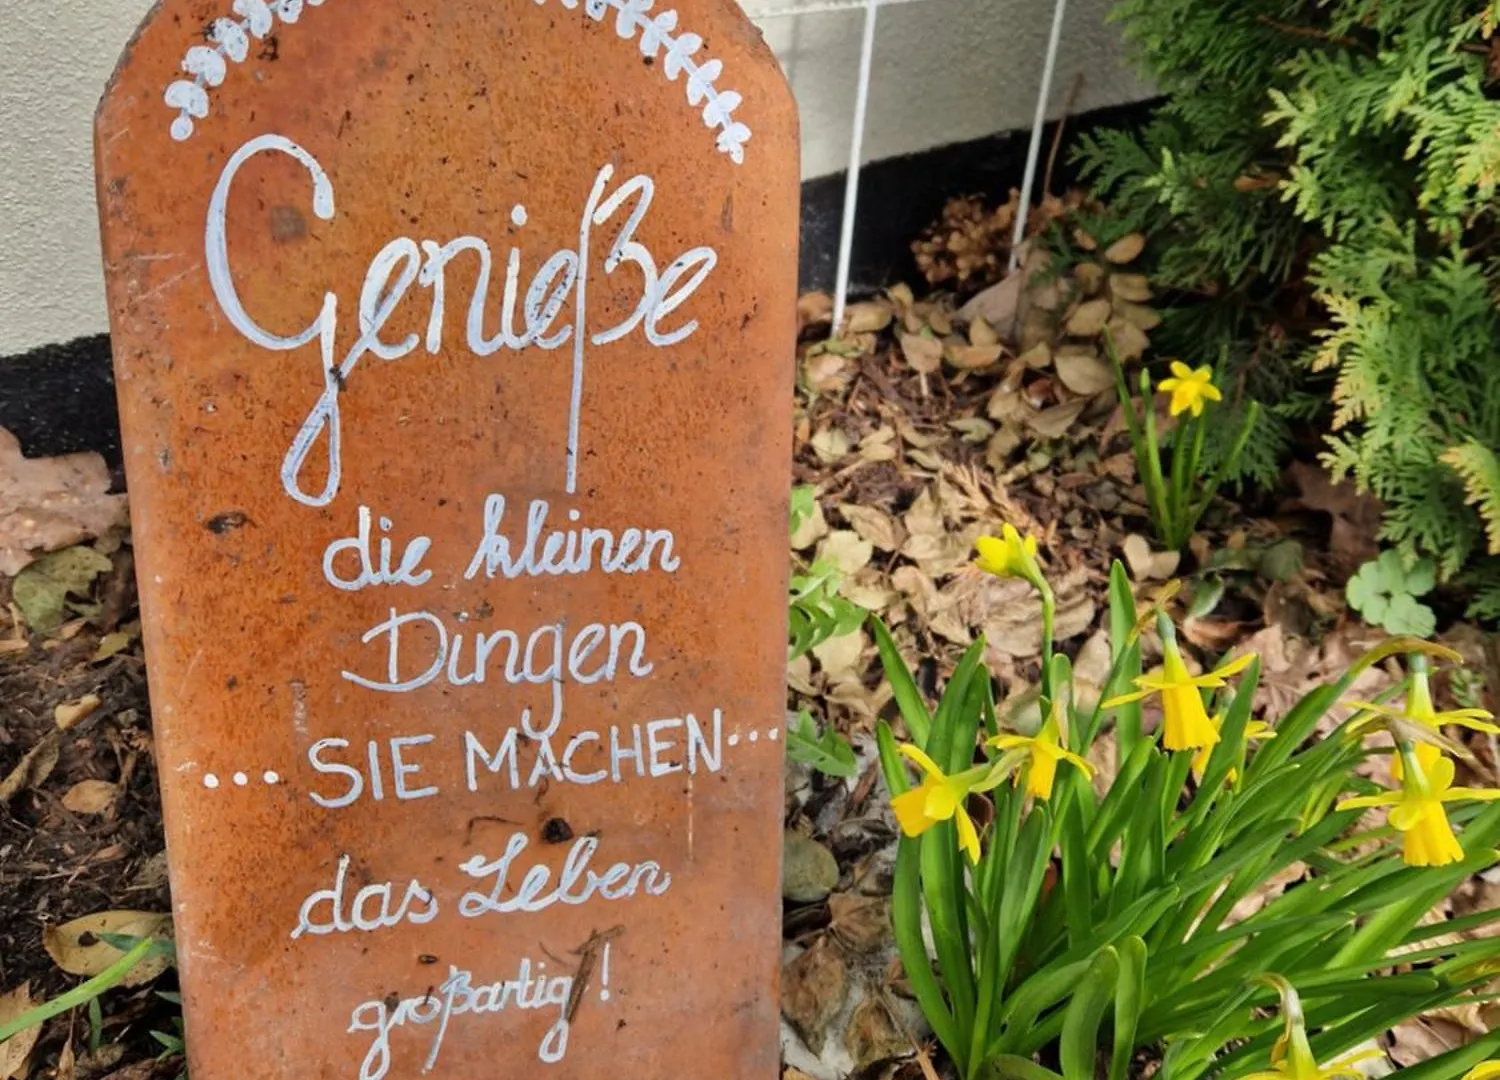 Genieße
die kleinen
Dingen
... SIE MACHEN...
das Leben
großartig!